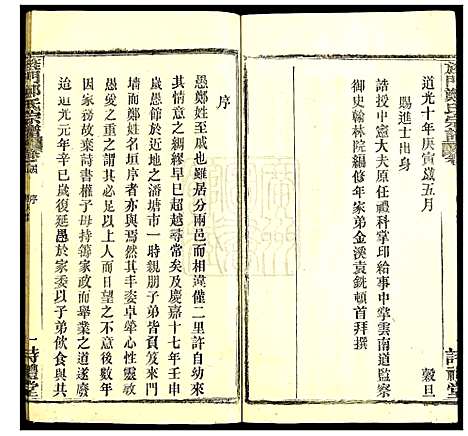 道光十年庚寅歲五月
穀旦
賜進士出身
誥授中憲大夫原任禮科掌印給事中掌雲南道監察
御史翰林院編修年家弟金溪袁銑頓首拜撰
詩禮堂
序
愚鄭姓之戚也雖居分兩邑而相違僅二里許自幼來
其情意之綢繆早已超越尋常矣及慶嘉十七年壬申
歲愚館於近地之潘塘市一時親朋子弟皆負笈來門
而鄭姓名垣序者亦與焉然其手姿卓犖心性靈敏
愚愛之重之都其必以上人而日望之不意年後因
家務故棄詩書權子母持家政而舉業之道遂廢
迨道光元年辛巳歲復延愚於家委以子弟飲食與其
鄭氏宗譜
序
一
詩禮堂